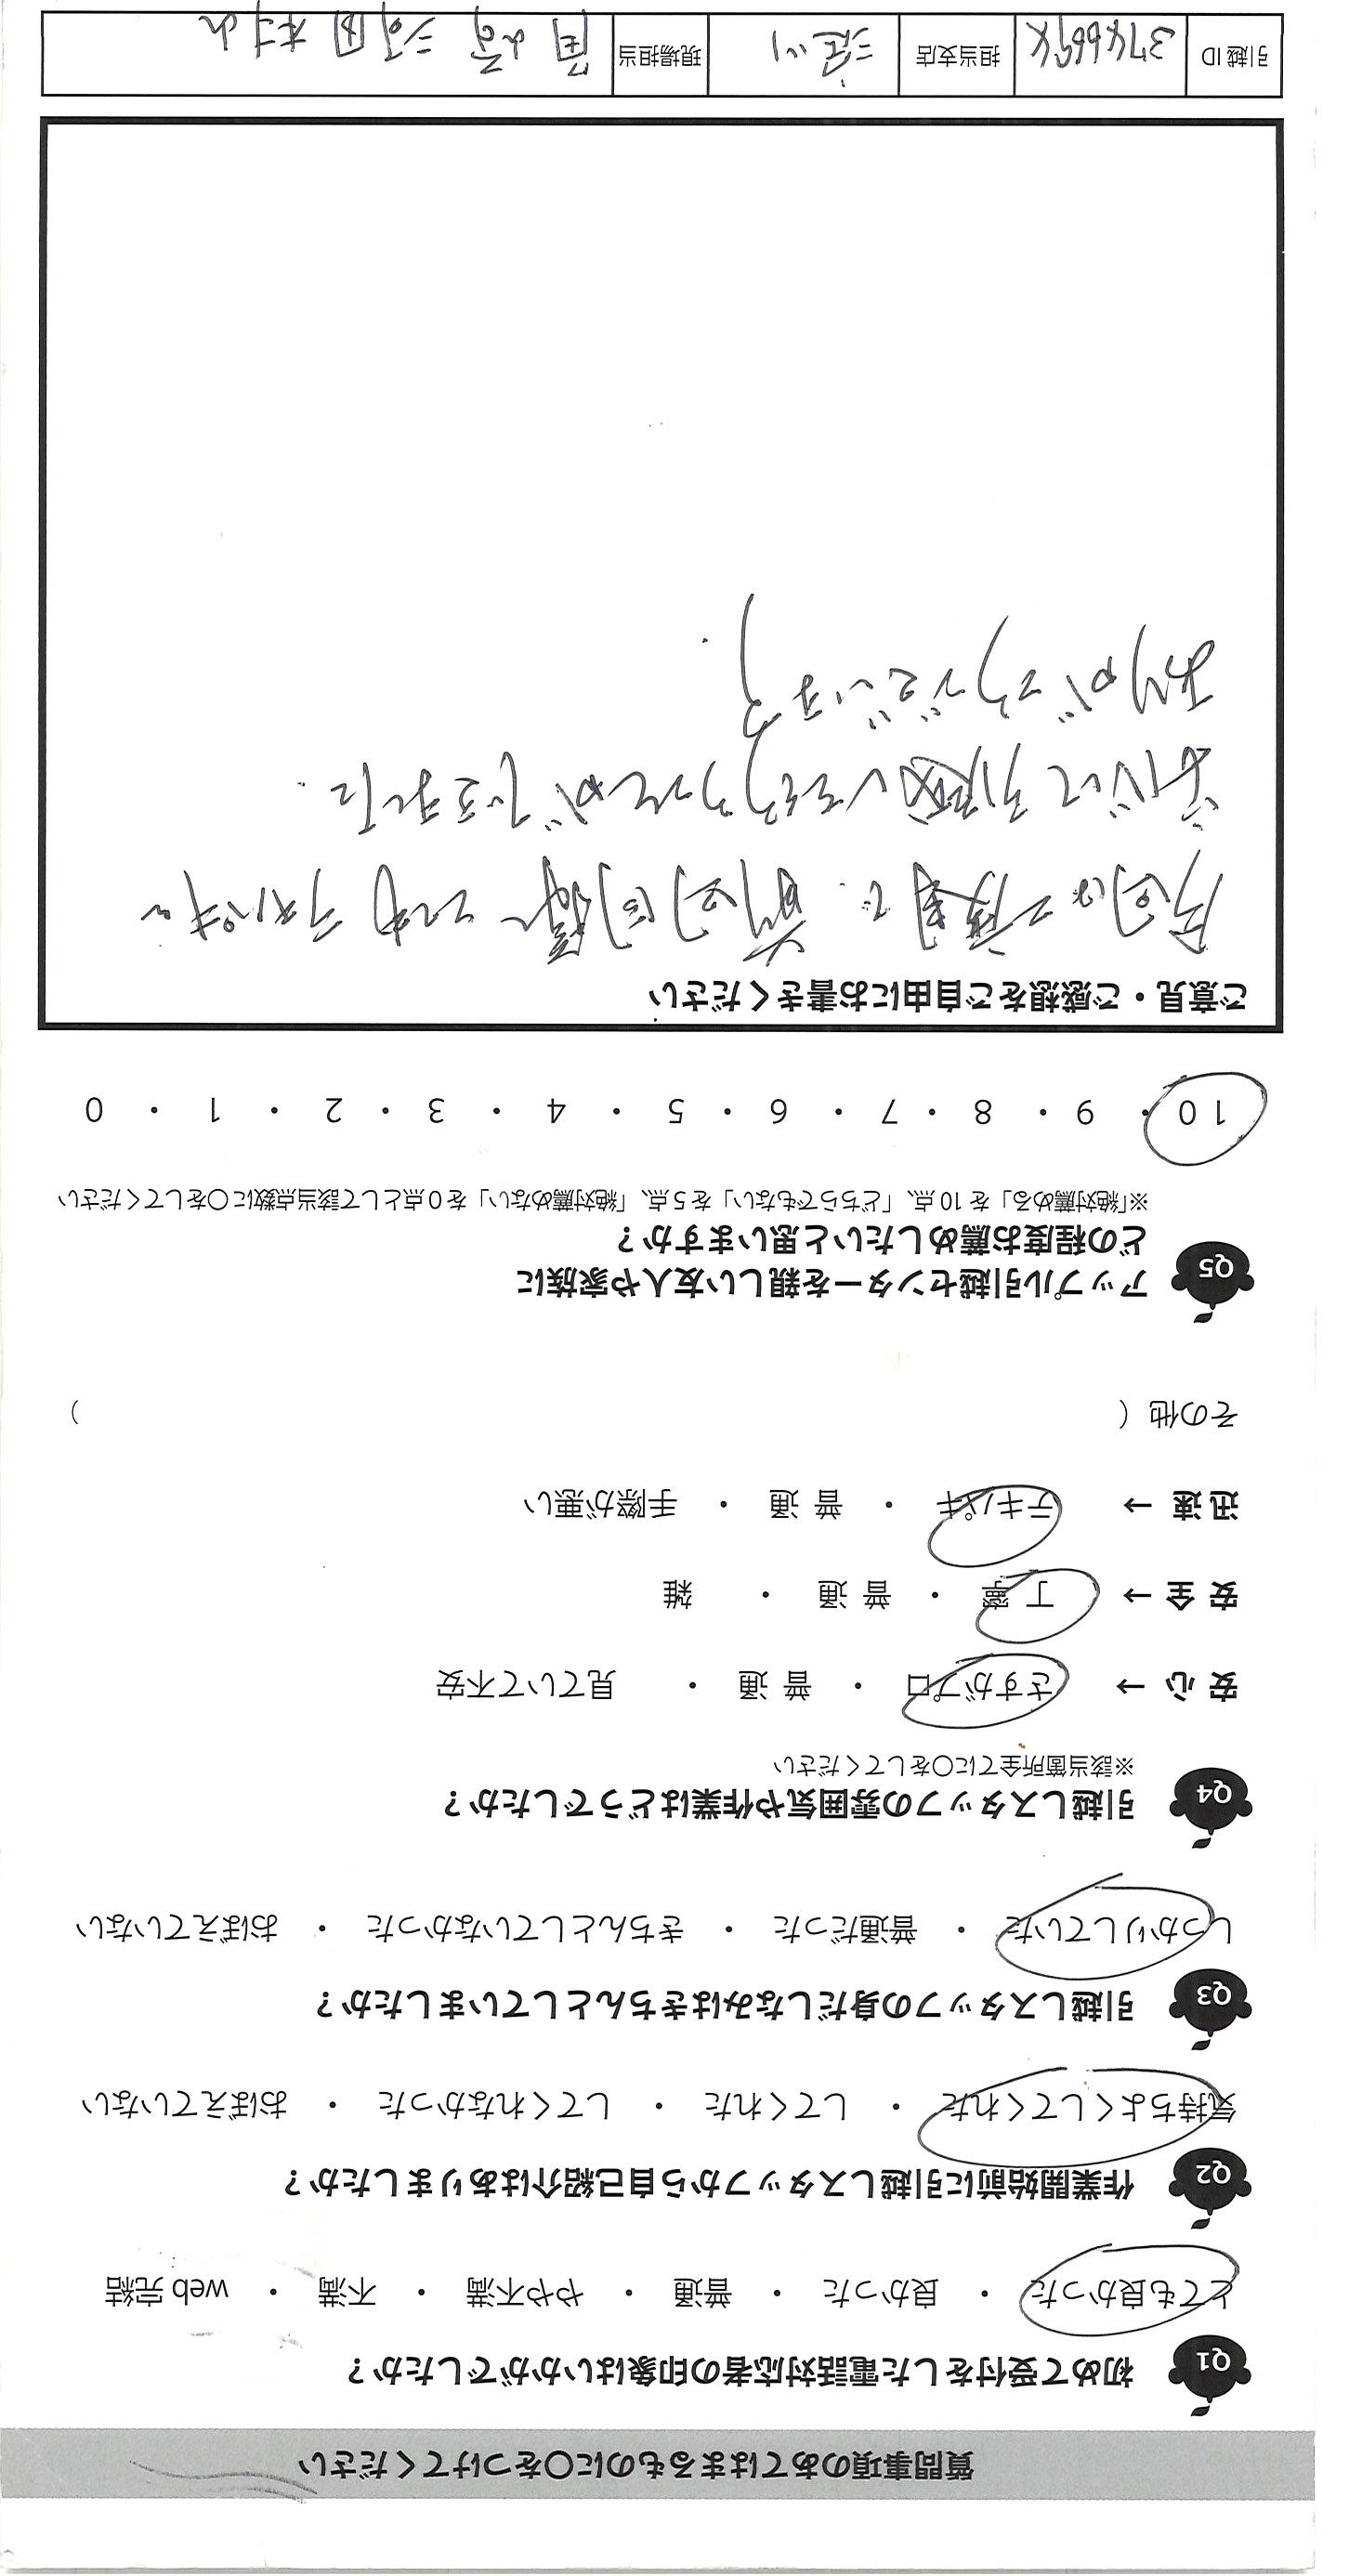 質問事項のあてはまるものに〇をつけてください
Q1 初めて受付をした電話対応者の印象はいかがでしたか？
とても良かった ・ 良かった ・ 普通 ・ やや不満 ・ 不満 ・ web 完結
Q2 作業開始前に引越しスタッフから自己紹介はありましたか？
気持ちよくしてくれた ・ してくれた ・ してくれなかった ・ おぼえていない
Q3 引越しスタッフの身だしなみはきちんとしていましたか？
しっかりしていた ・ 普通だった ・ きちんとしていなかった ・ おぼえていない
Q4 引越しスタッフの雰囲気や作業はどうでしたか？
※該当箇所全てに〇をしてください
安 心 → さすがプロ ・ 普 通 ・ 見ていて不安
安 全 → 丁 寧 ・ 普 通 ・ 雑
迅 速 → テキパキ ・ 普 通 ・ 手際が悪い
その他（ ）
Q5 アップル引越センターを親しい友人や家族に
どの程度お薦めしたいと思いますか？
※「絶対薦める」を 10 点、「どちらでもない」を 5 点、「絶対薦めない」を 0 点として該当点数に〇をしてください
10 ・ 9 ・ 8 ・ 7 ・ 6 ・ 5 ・ 4 ・ 3 ・ 2 ・ 1 ・ 0
ご意見・ご感想をご自由にお書きください
今回は二度目で、前回同様とても
引越しをすることができました.
ありがとうございます.
引越 ID 担当支店 現場担当